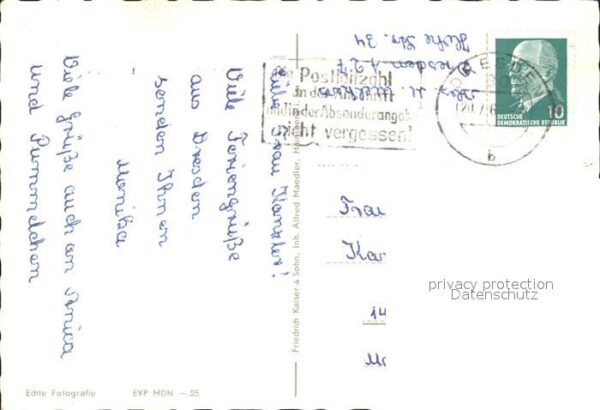 Liebe Frau Kanzler!
Viele Feriengrüße
aus Dresden
senden Ihnen
Monika
Viele Grüße auch an Anica
und Pummelchen
Dresden A 27
Hohe Str. 34
Die Postleitzahl
in der Anschrift
und in der Absenderangabe
nicht vergessen!
DRESDEN
b
10
DEUTSCHE
DEMOKRATISCHE REPUBLIK
Friedrich Kaiser & Sohn, Inh. Alfred Maedler,
Frau
privacy protection
Datenschutz
14
Echte Fotografie EVP MDN —.25